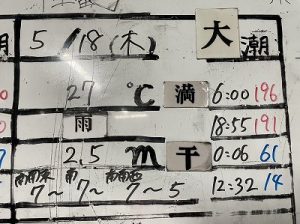 5/18(木) 大潮
27℃ 満 6:00 196
雨 18:55 191
2.5m 干 0:06 61
南南東 南 南南西 12:32 14
7～7～7～5